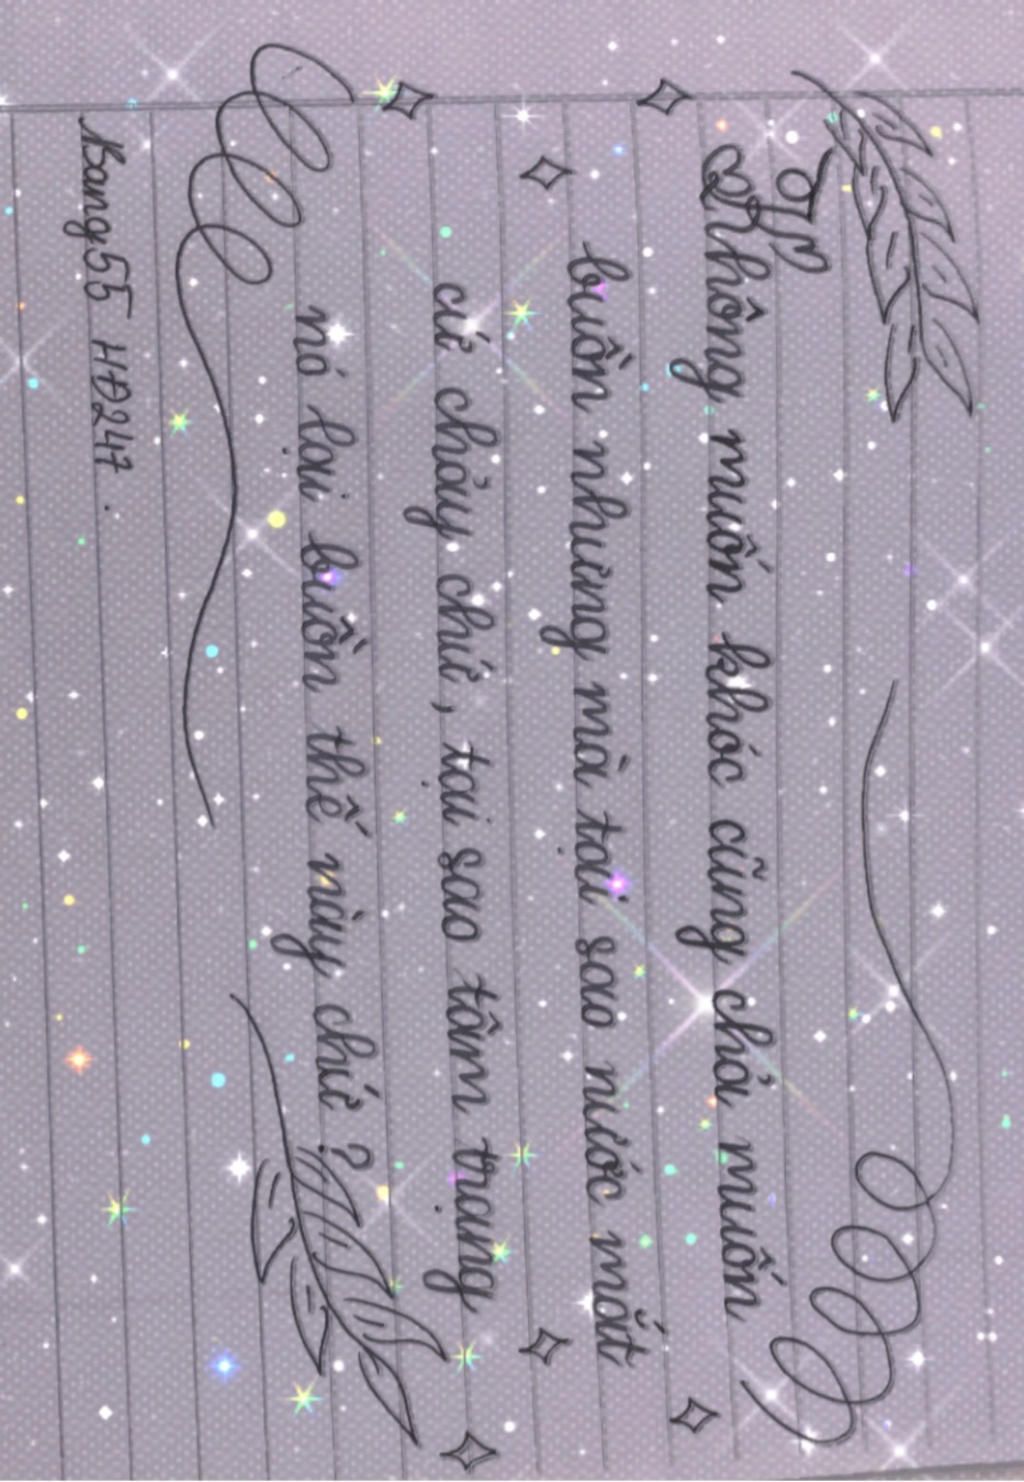 Không muốn khóc cũng chả muốn
buồn nhưng mà tại sao nước mắt
cứ chảy chứ, tại sao tâm trạng
nó lại buồn thế này chứ?
Bang55 HĐ247.